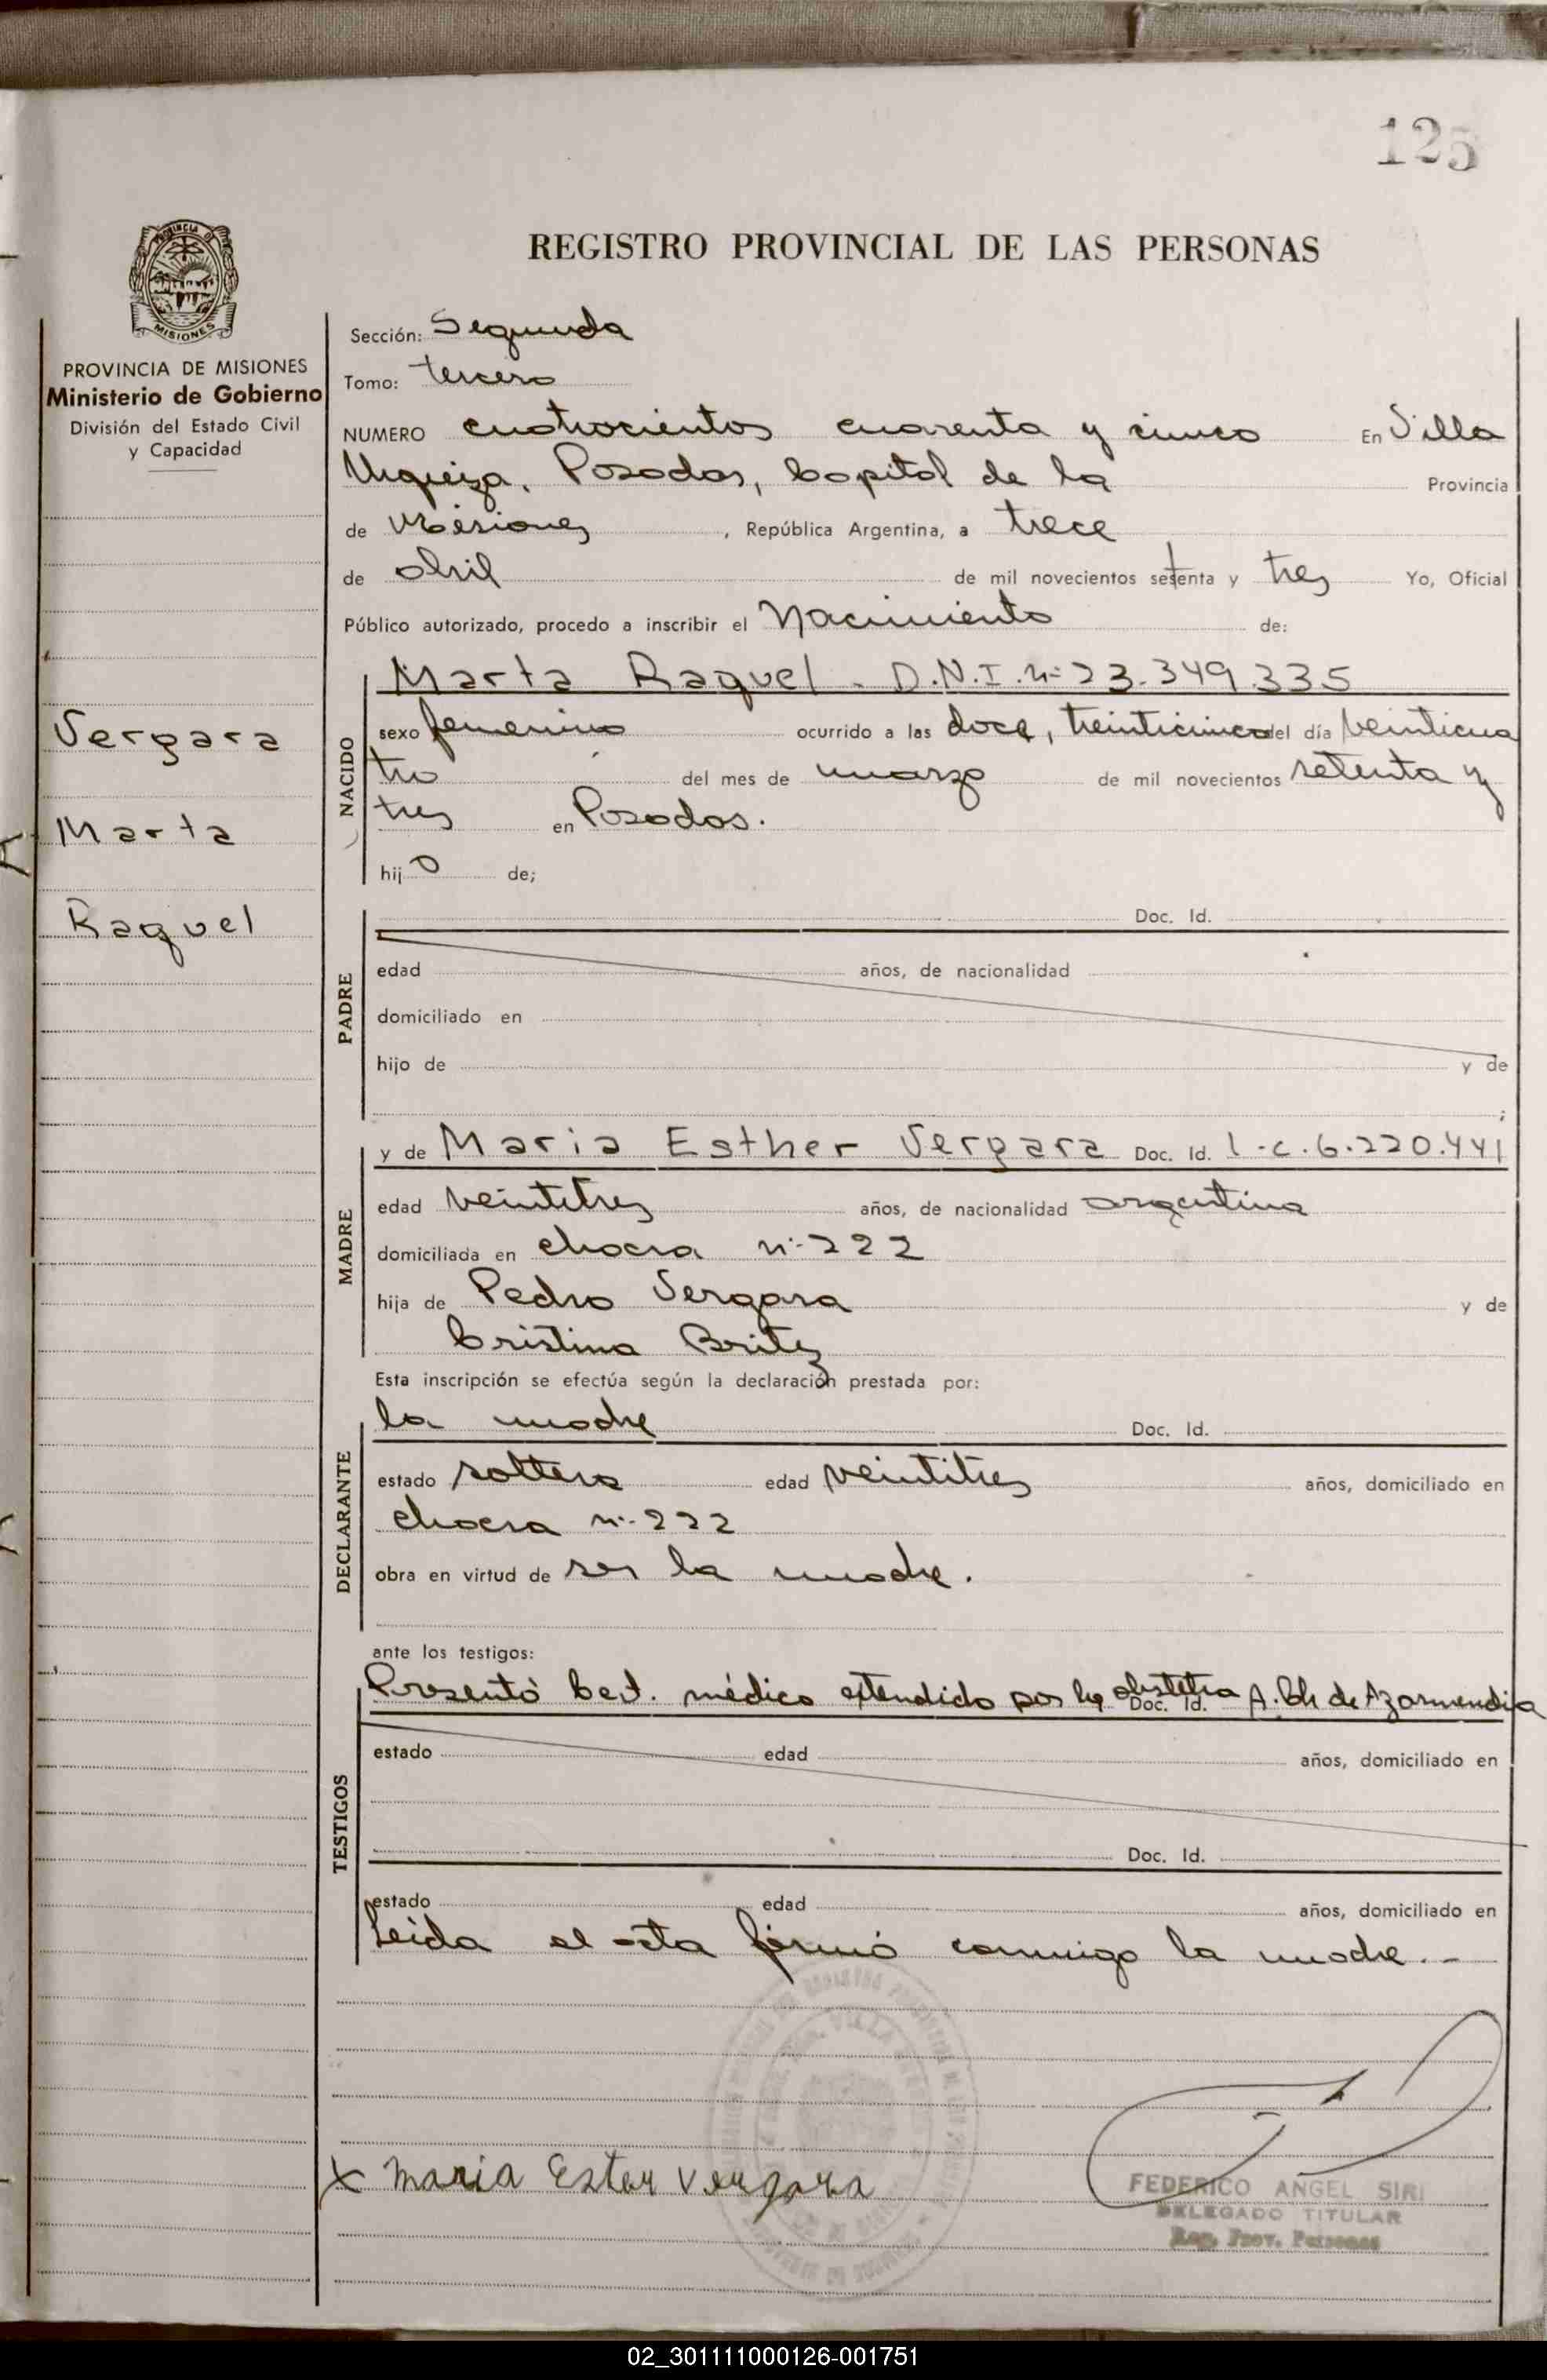 125
PROVINCIA DE
MISIONES
REGISTRO PROVINCIAL DE LAS PERSONAS
PROVINCIA DE MISIONES
Ministerio de Gobierno
División del Estado Civil
y Capacidad
Vergara
Marta
Raquel
Sección: Segunda
Tomo: tercero
NUMERO cuatrocientos cuarenta y cinco En Villa
Urquiza, Posadas, Capital de la Provincia
de Misiones, República Argentina, a trece
de abril de mil novecientos setenta y tres Yo, Oficial
Público autorizado, procedo a inscribir el Nacimiento de:
NACIDO
Marta Raquel - D.N.I. nº 23.349.335
sexo femenino ocurrido a las doce, treinticinco del día veinticua
tro del mes de marzo de mil novecientos setenta y
tres en Posadas.
hij o de;
PADRE
Doc. Id.
edad años, de nacionalidad
domiciliado en
hijo de y de
;
MADRE
y de Maria Esther Vergara Doc. Id. l.c. 6.220.441
edad veintitres años, de nacionalidad argentina
domiciliada en chacra nº 222
hija de Pedro Vergara y de
Cristina Britez
Esta inscripción se efectúa según la declaración prestada por:
DECLARANTE
la madre Doc. Id.
estado soltera edad veintitres años, domiciliado en
chacra nº 222
obra en virtud de ser la madre.
ante los testigos:
TESTIGOS
Presentó Cert. médico extendido por la obstetra Doc. Id. A. de Azarmendia
estado edad años, domiciliado en
Doc. Id.
estado edad años, domiciliado en
Leida el acta firmó conmigo la madre.-
x Maria Ester Vergara
FEDERICO ANGEL SIRI
DELEGADO TITULAR
Reg. Prov. Personas
02_301111000126-001751